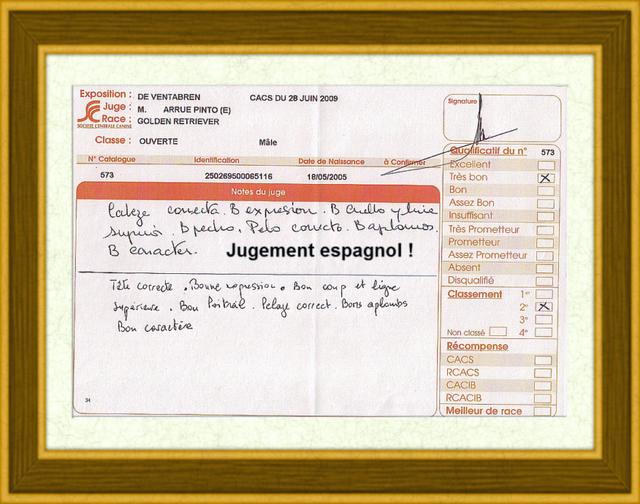 Exposition : DE VENTABREN CACS DU 28 JUIN 2009
Juge : M. ARRUE PINTO (E)
Race : GOLDEN RETRIEVER
SOCIETE CENTRALE CANINE
Classe : OUVERTE Mâle
N° Catalogue Identification Date de Naissance à Confirmer
573 250269500065116 18/05/2005
Notes du juge
Cabeza correcta. B expresion. B Cuello y linea
superior. B pecho. Pelo correcto. B aplomos.
B caracter.
Jugement espagnol !
Tête correcte. Bonne expression. Bon coup et ligne
supérieure. Bon Poitrail. Pelage correct. Bons aplombs
Bon caractère
34
Signature
Qualificatif du n° 573
Excellent
Très bon X
Bon
Assez Bon
Insuffisant
Très Prometteur
Prometteur
Assez Prometteur
Absent
Disqualifié
Classement 1er
2e X
3e
Non classé 4e
Récompense
CACS
RCACS
CACIB
RCACIB
Meilleur de race